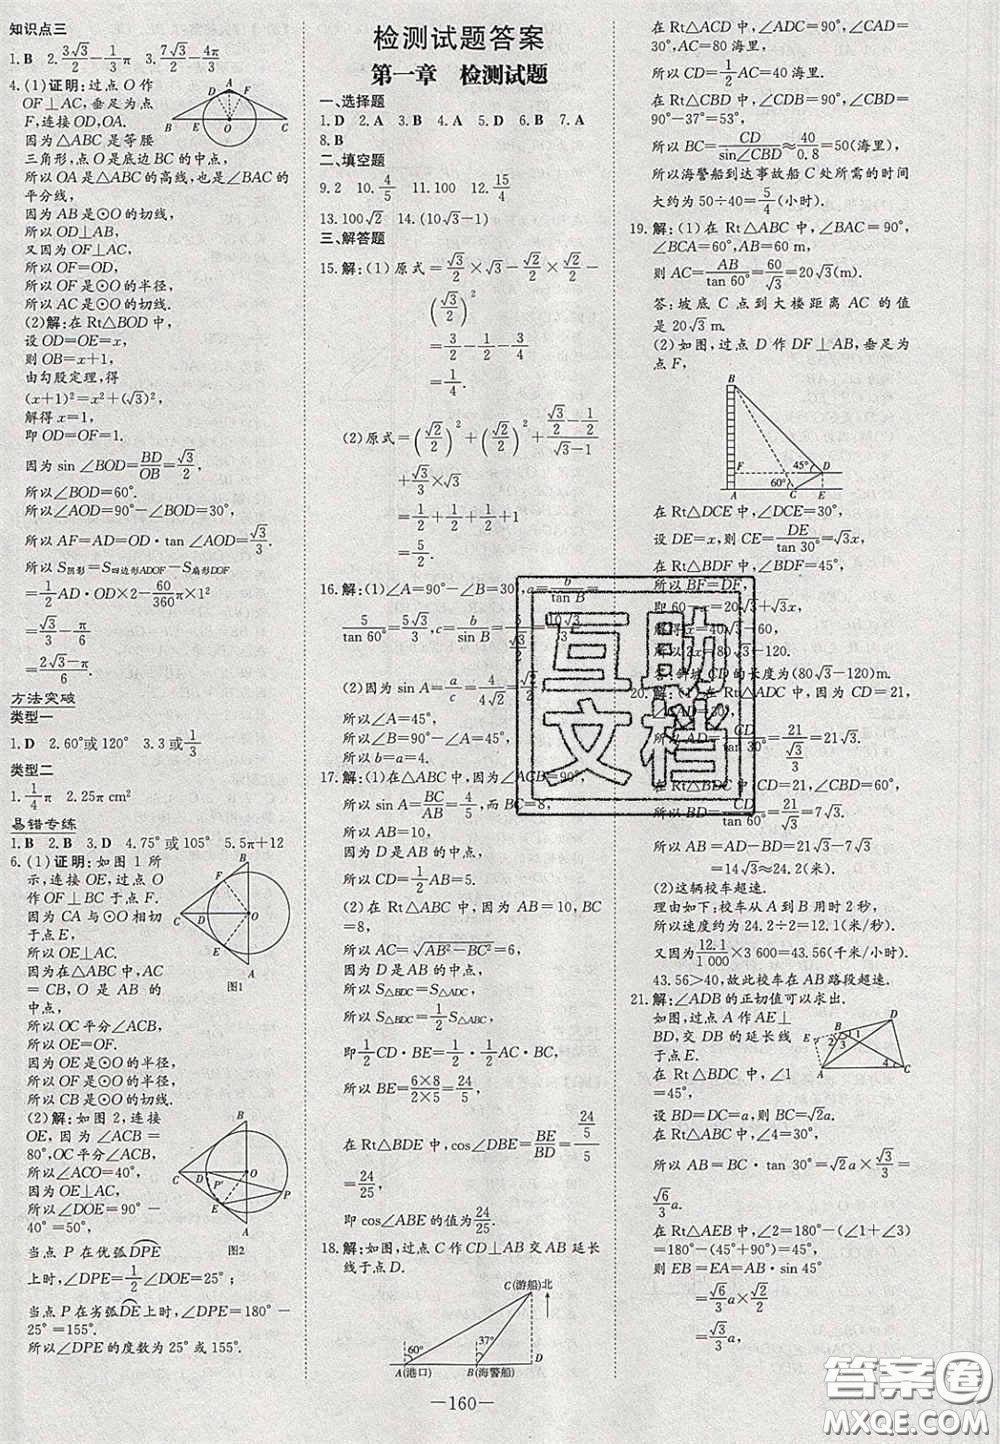 知识点三
1. B　2. 3√3/2－1/3π　3. √3/2－π/6
4. (1)证明:过点O作
OF⊥AC,垂足为点
F,连接OD,OA.
因为△ABC是等腰
三角形,点O是底边BC的中点,
所以OA是△ABC的高线,也是∠BAC的
平分线,
因为AB是⊙O的切线,
所以OD⊥AB,
又因为OF⊥AC,
所以OF=OD,
因为OF是⊙O的半径,
所以AC是⊙O的切线.
(2)解:在Rt△BOD中,
设OD=OE=x,
则OB=x+1,
由勾股定理,得
(x+1)²=x²+(√3)²,
解得x=1.
即OD=OF=1.
因为sin∠BOD=BD/OB=√3/2,
所以∠BOD=60°.
所以∠AOD=90°-∠BOD=30°,
所以AF=AD=OD·tan∠AOD=√3/3.
所以S阴影=S四边形ADOF-S扇形DOF
=1/2 AD·OD×2-60/360π×1²
=√3/3-π/6
=(2√3-π)/6.
方法突破
类型一
1. D　2. 60°或120°　3. 3或1/3
类型二
1. 1/4π　2. 25π cm²
易错专练
1. B　2. B　3. D　4. 75°或105°　5. 5π+12
6. (1)证明:如图1所
示,连接OE,过点O
作OF⊥BC于点F.
因为CA与⊙O相切
于点E,
所以OE⊥CA.
因为在△ABC中,AC
=CB,O是AB的中
点,
所以OC平分∠ACB,
所以OE=OF.
因为OE是⊙O的半径,
所以OF是⊙O的半径,
所以CB是⊙O的切线.
图1
(2)解:如图2,连接
OE,因为∠ACB=
80°,
所以∠ACO=40°,
因为OE⊥AC,
所以∠DOE=90°-
40°=50°,
图2
当点P在优弧DPE
上时,∠DPE=1/2∠DOE=25°;
当点P在劣弧DE上时,∠DPE=180°-
25°=155°.
所以∠DPE的度数为25°或155°.
检测试题答案
第一章　检测试题
一、选择题
1. D　2. A　3. B　4. A　5. D　6. B　7. A
8. B
二、填空题
9. 2　10. 4/5　11. 100　12. 15/4
13. 100√2　14. (10√3-1)
三、解答题
15. 解:(1)原式=√3/2×√3-√2/2×√2/2-
(√3/2)²
=3/2-1/2-3/4
=1/4.
(2)原式=(√2/2)²+(√2/2)²+(√3/2-1/2)/(√3-1)
+√3/2·√3/3
=1/2+1/2+1/2+1
=5/2.
16. 解:(1)∠A=90°-∠B=30°,a=b/tan B=
5/tan 60°=5√3/3,c=b/sin B=5/(√3/2)=10√3/3.
(2)因为sin A=a/c=4/(4√2)=√2/2,
所以∠A=45°,
所以∠B=90°-∠A=45°,
所以b=a=4.
17. 解:(1)在△ABC中,因为∠ACB=90°,
所以sin A=BC/AB=4/5,而BC=8,
所以AB=10,
因为D是AB的中点,
所以CD=1/2AB=5.
(2)在Rt△ABC中,因为AB=10,BC
=8,
所以AC=√(AB²-BC²)=6,
因为D是AB的中点,
所以S△BDC=S△ADC,
所以S△BDC=1/2S△ABC,
即1/2CD·BE=1/2·1/2AC·BC,
所以BE=(6×8)/(2×5)=24/5,
在Rt△BDE中,cos∠DBE=BE/BD=(24/5)/5=
24/25,
即cos∠ABE的值为24/25.
18. 解:如图,过点C作CD⊥AB交AB延长
线于点D.
C(游船)北
60°　37°
A(港口)　B(海警船)　D
在Rt△ACD中,∠ADC=90°,∠CAD=
30°,AC=80海里,
所以CD=1/2AC=40(海里).
在Rt△CBD中,∠CDB=90°,∠CBD=
90°-37°=53°,
所以BC=CD/sin∠CBD≈40/0.8=50(海里).
所以海警船到达事故船C处所需的时间
大约为50÷40=5/4(小时).
19. 解:(1)在Rt△ABC中,∠BAC=90°,
∠BCA=60°,AB=60 m,
则AC=AB/tan 60°=60/√3=20√3(m).
答:坡底C点到大楼距离AC的值
是20√3 m.
(2)如图,过点D作DF⊥AB,垂足为
点F,
在Rt△DCE中,∠DCE=30°,
设DE=x,则CE=DE/tan 30°=√3x,
在Rt△BDF中,∠BDF=45°,
所以BF=DF,
即60-x=20√3+√3x,
解得x=40√3-60.
所以2x=80√3-120.
答:斜坡CD的长度为(80√3-120)m.
20. 解:(1)在Rt△ADC中,因为CD=21,
∠CAD=30°,
所以AD=CD/tan 30°=21/(√3/3)=21√3.
在Rt△BDC中,CD=21,∠CBD=60°,
所以BD=CD/tan 60°=21/√3=7√3,
所以AB=AD-BD=21√3-7√3
=14√3≈24.2(米).
(2)这辆校车超速.
理由如下:校车从A到B用时2秒,
所以速度约为24.2÷2=12.1(米/秒).
又因为12.1/1 000×3 600=43.56(千米/小时).
43.56>40,故此校车在AB路段超速.
21. 解:∠ADB的正切值可以求出.
如图,过点A作AE⊥
BD,交DB的延长线
于点E.
在Rt△BDC中,∠1
=45°,
设BD=DC=a,则BC=√2a.
在Rt△ABC中,∠4=30°,
所以AB=BC·tan 30°=√2a×√3/3=
√6/3a.
在Rt△AEB中,∠2=180°-(∠1+∠3)
=180°-(45°+90°)=45°.
则EB=EA=AB·sin 45°
=√6/3a×√2/2
=√3/3a,
—160—
互助
文档
答案圈
MXQE.COM